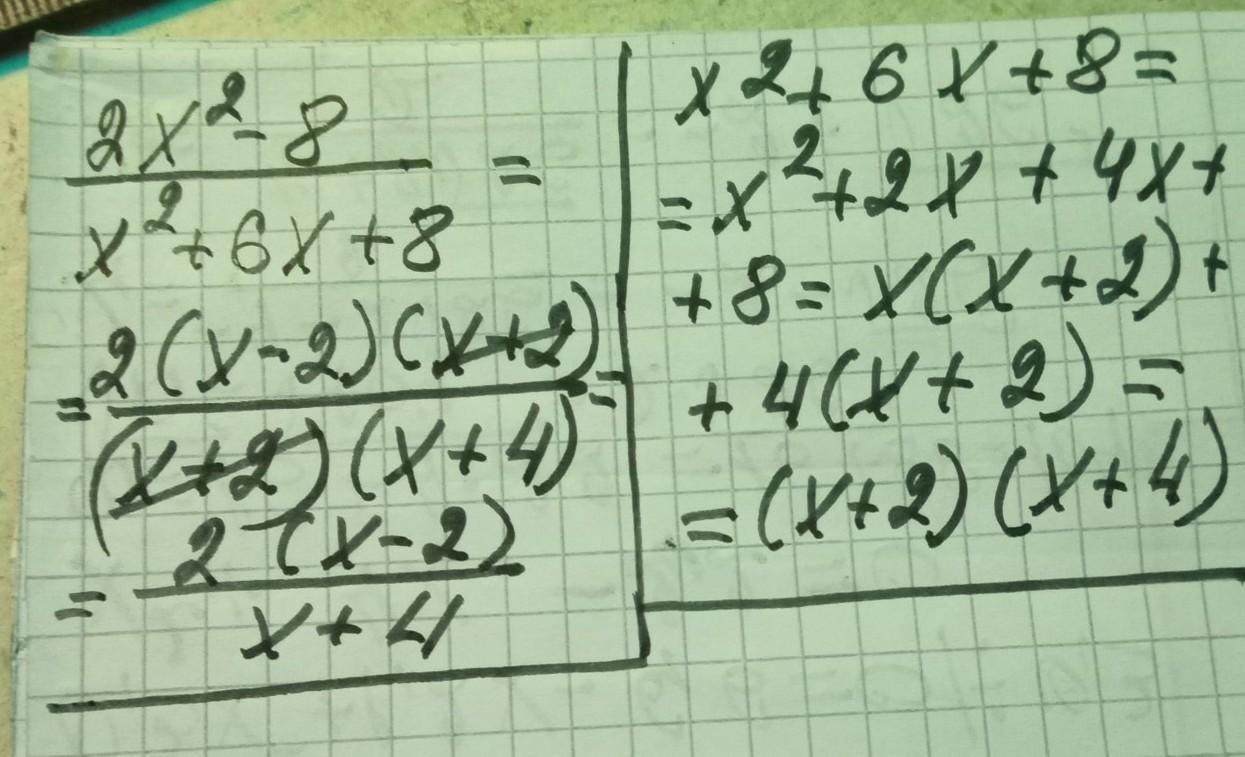 2x² - 8
x² + 6x + 8
=
= 2(x-2)(x+2)
(x+2)(x+4)
=
= 2(x-2)
x+4
x2 + 6x + 8 =
= x² + 2x + 4x +
+ 8 = x(x+2) +
+ 4(x+2) =
= (x+2)(x+4)